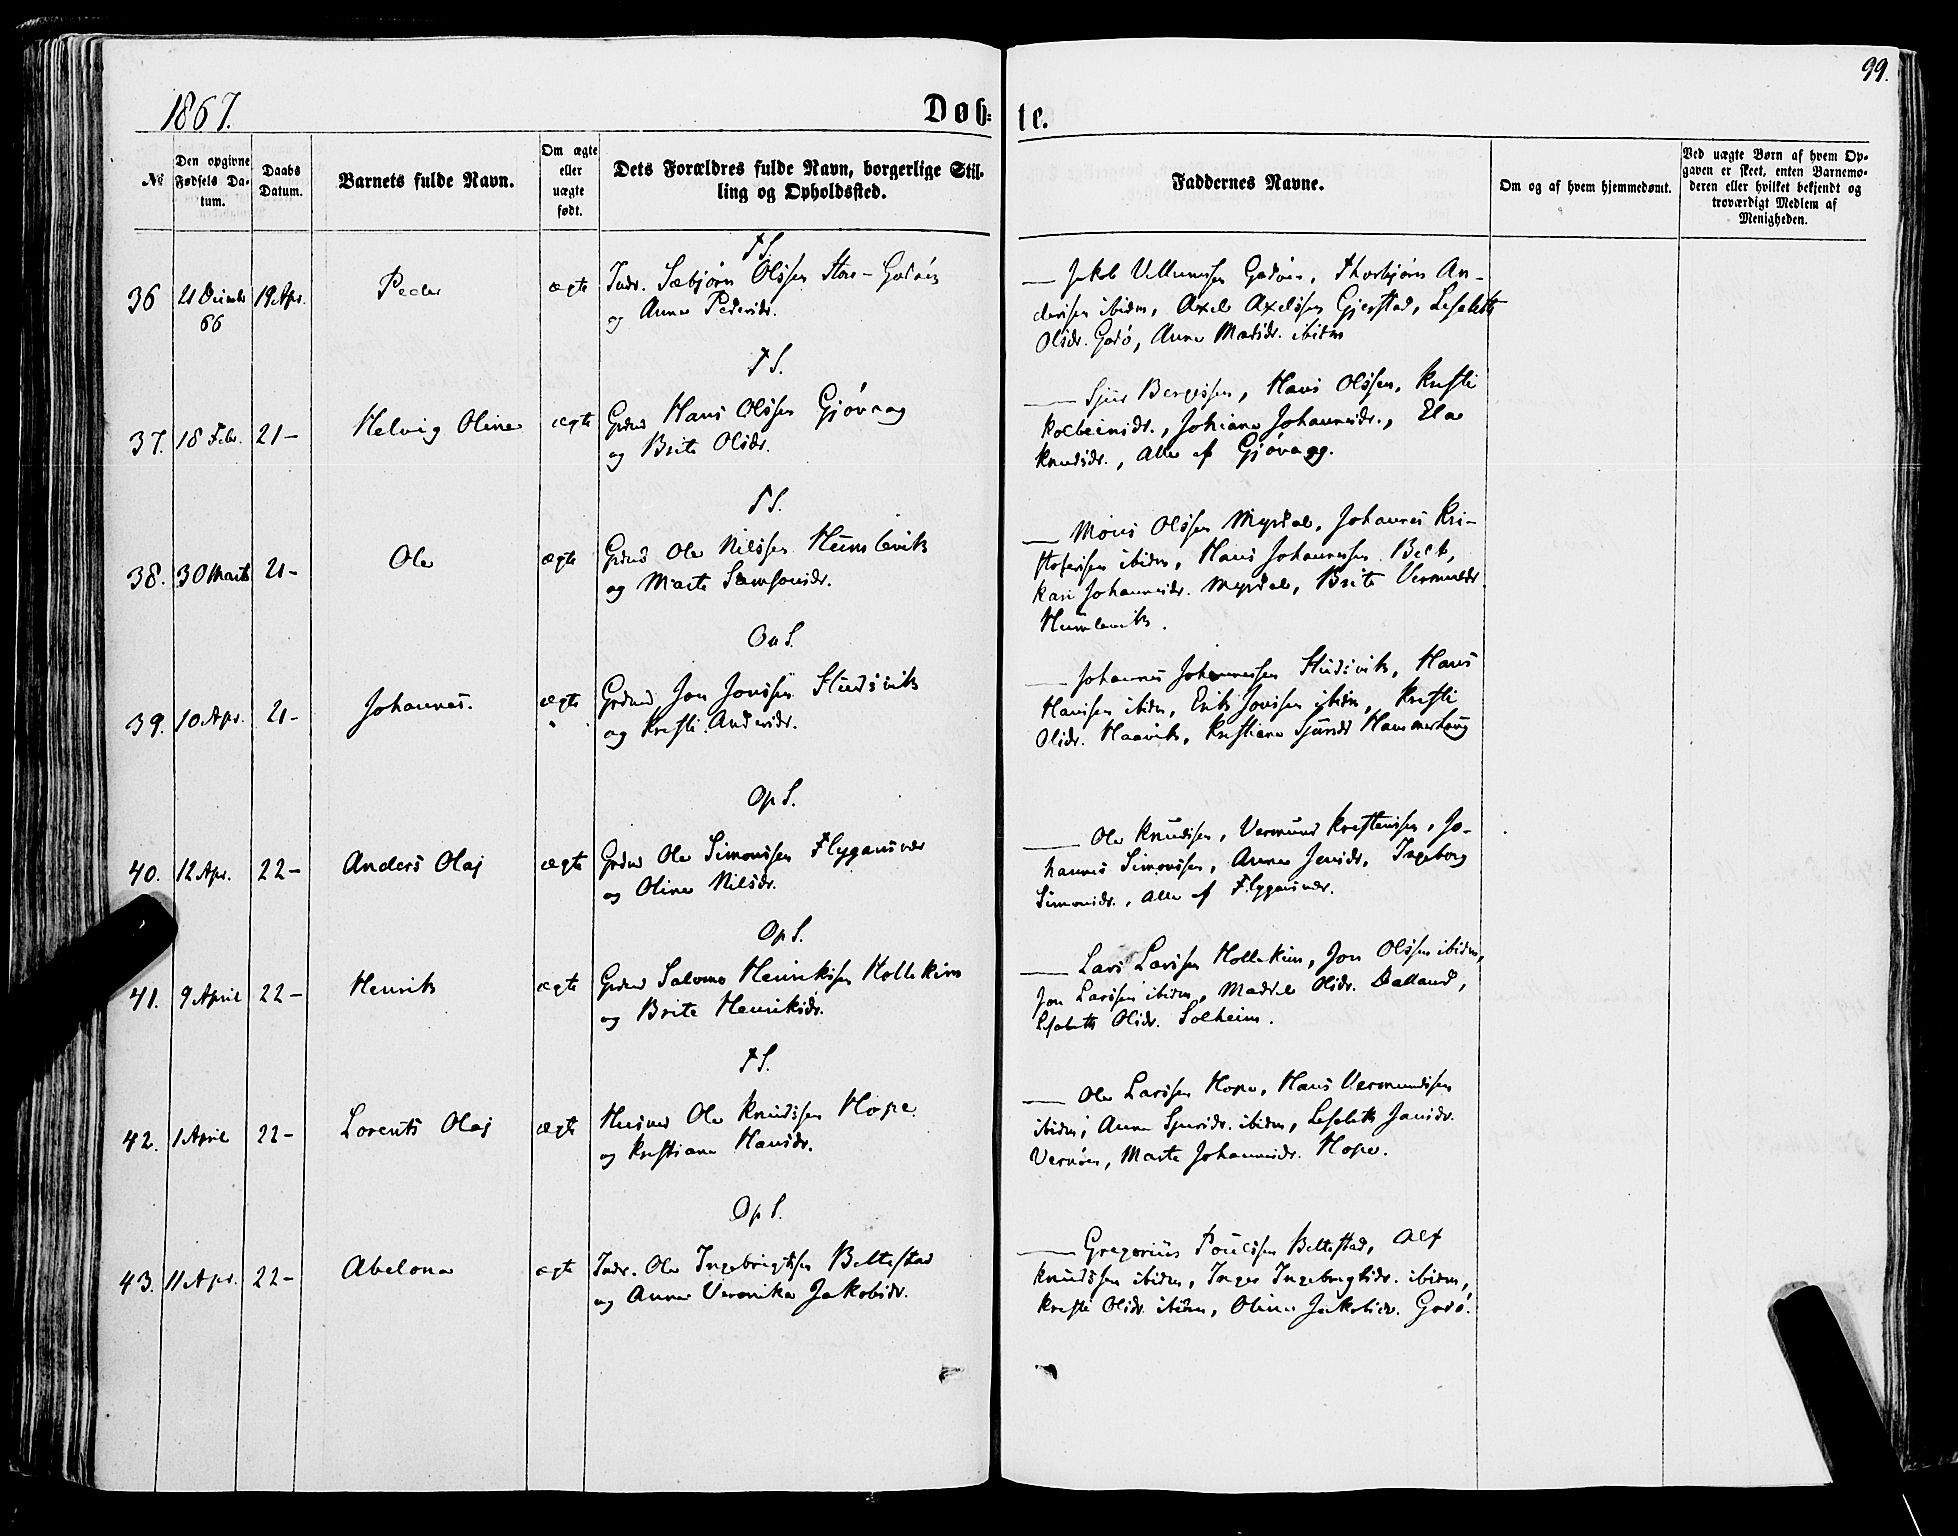 99.
1867.
Døb-
te.
№
Den opgivne Fødsels Da-
tum.
Daabs Datum.
Barnets fulde Navn.
Om ægte eller uægte født.
Dets Forældres fulde Navn, borgerlige Stil-
ling og Opholdssted.
Faddernes Navne.
Om og af hvem hjemmedømt.
Ved uægte Børn af hvem Op-
gaven er skeet, enten Barnemo-
deren eller hvilket bekjendt og
troværdigt Medlem af
Menigheden.
36
21 Decembr
66
19 Apr.
Peder
ægte
Indr. Sæbjørn Olssen Store-Godøen
og Anna Pedersdr.
Jakob Villumssen Godøen, Thorbjørn An-
dersen ibidm, Axel Axelssen Gjerstad, Lesabeth
Olsdr. Godø, Anna Madsdr. ibidm
37.
18 Febr.
21-
Helvig Oline
ægte
Grdmd Hans Olssen Gjøvaag
og Brite Olsdr.
Sjur Bergessen, Hans Olssen, Kristi
Kolbeinsdr., Johiane Johannesdr., Ela
Knudsdr., Alle af Gjøvaag.
38.
30 Marts
21-
Ole
ægte
Grdmd Ole Nilssen Humlevik
og Marte Samsonsdr.
Mons Olssen Myrdal, Johannes Kri-
stofersen ibidm, Hans Johannessen
Kari Johannesdr. Myrdal, Brite Vermundsdr
Humlevik.
39.
10 Apr.
21-
Johannes.
ægte
Grdmd Jon Jonssen Skudsvik
og Kristi Andersdr.
Johannes Johannessen Skudsvik, Hans
Hanssen ibidm, Erik Jonssen ibidm, Kristi
Olsdr. Haavik, Kristiane Sjursdr Hammerhaug
Op S.
40.
12 Apr.
22-
Anders Olaj
ægte
Grdmd Ole Simonssen Flygansvær
og Oline Nilsdr.
Ole Knudssen, Vermund Kristenssen, Jo-
hannes Simonssen, Anna Jensdr, Ingeborg
Simonsdr., Alle af Flygansvær.
Op S.
41.
9 April
22-
Henrik
ægte
Grdmd Salomo Henrikssen Hollekim
og Brite Henriksdr.
Lars Larssen Hollekim, Jon Olssen ibidm,
Jon Larssen ibidm, Madsel Olsdr. Dalland,
Lisabeth Olsdr. Solheim.
42.
1 April
22-
Lorents Olaj
ægte
Husmd Ole Knudssen Hope
og Kristiane Hansdr.
Ole Larssen Hope, Hans Vermundssen
ibidm, Anna Sjursdr. ibidm, Lesabeth Jansdr.
Vernøen, Marte Johannesdr. Hope.
Op S.
43.
11 Apr.
22-
Abelone
ægte
Indr. Ole Ingebrigtssen Beltestad
og Anna Veronika Jakobsdr.
Gregorius Poulssen Beltestad, Alf
Knudssen ibidm, Inger Ingebrigtsdr. ibidm,
Kristi Olsdr. ibidm, Oline Jakobsdr. Godø.